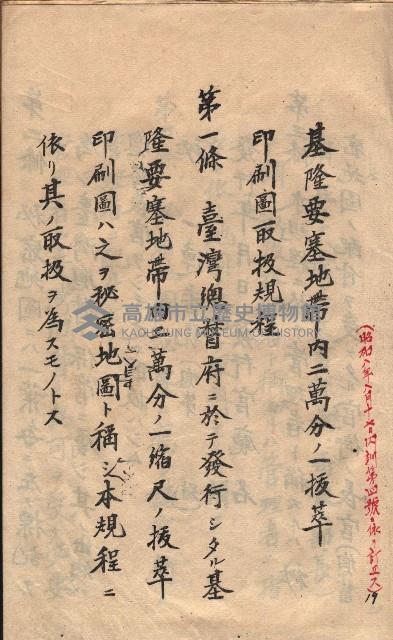 (昭和八年八月十七日內訓第四號ニ依リ訂正ス)
19
基隆要塞地帶內二萬分ノ一拔萃
印刷圖取扱規程
第一條 臺灣總督府ニ於テ發行シタル基
隆要塞地帶內二萬分ノ一縮尺ノ拔萃
印刷圖ハ之ヲ秘密地圖ト稱シ本規程ニ
依リ其ノ取扱ヲ為スモノトス
高雄市立歷史博物館
KAOHSIUNG MUSEUM OF HISTORY